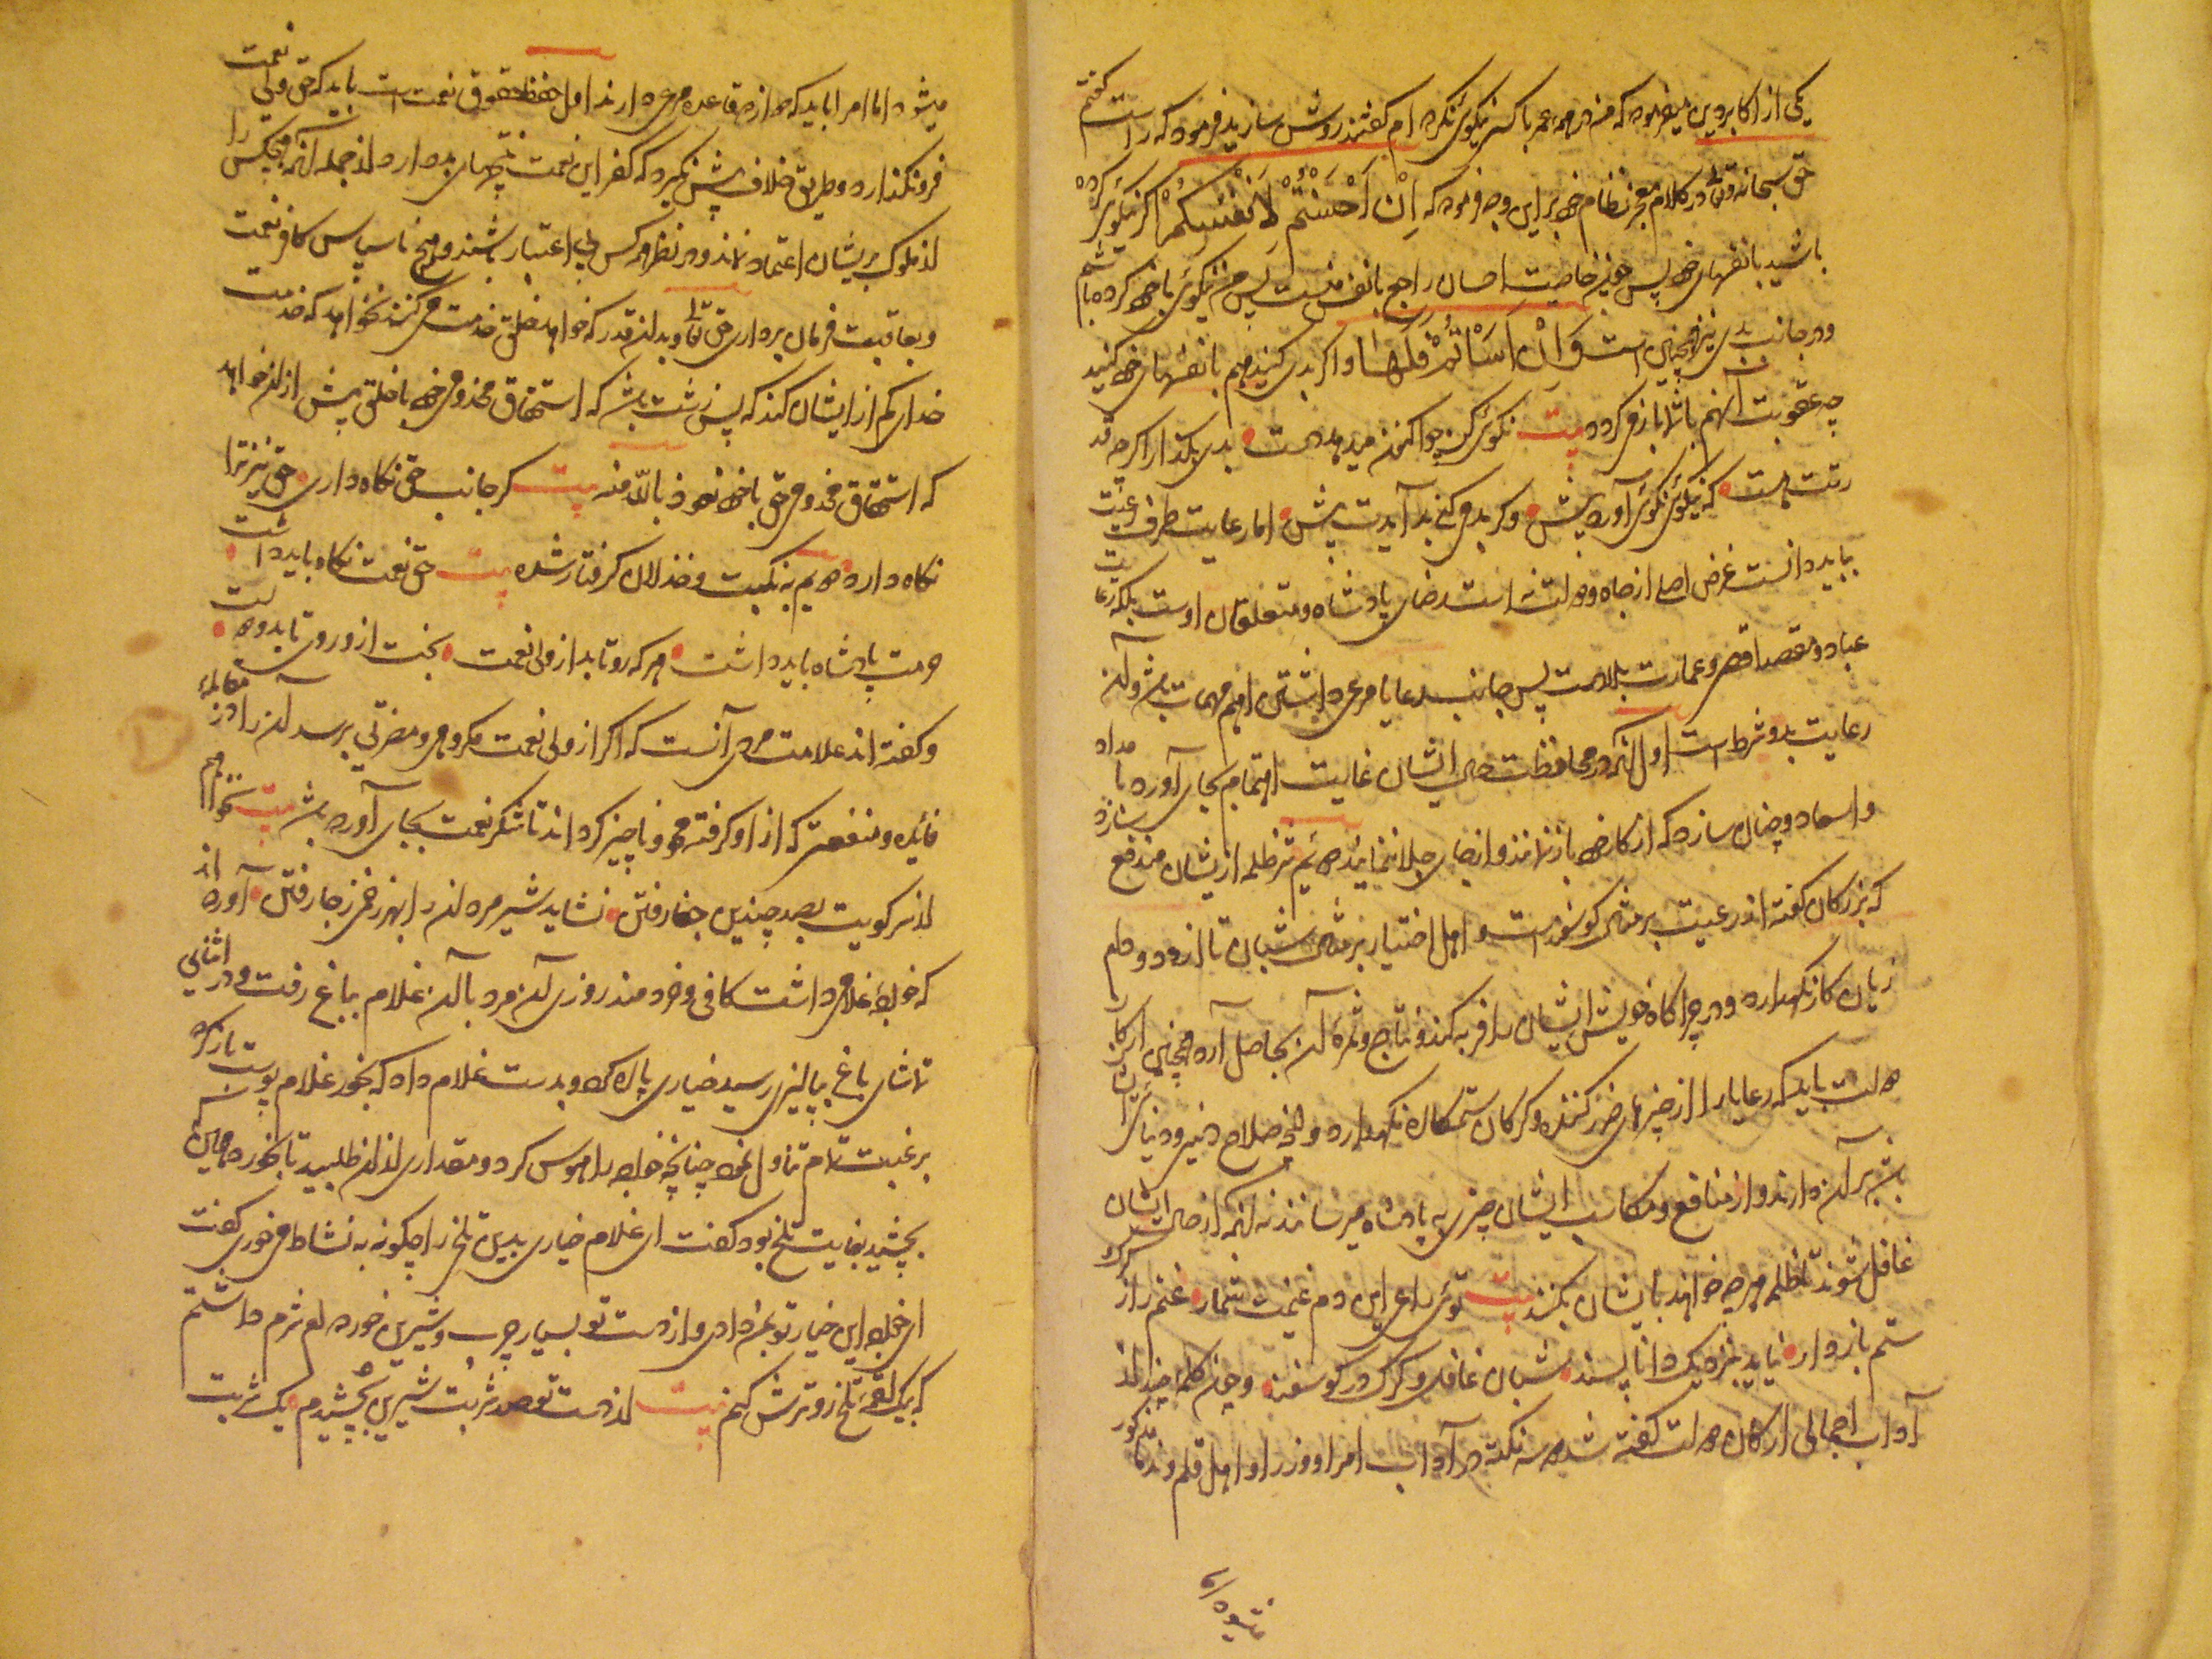 یکی از اکابر دین میفرمود که من در همه عمر با کسی نیکوئی نکرده ام گفتند روشن سازید فرمود که راست گفتم
حق سبحانه و تعالی در کلام معجز نظام خود براین وجه فرموده که اِنْ اَحْسَنْتُمْ لِاَنْفُسِكُمْ اگر نیکوئی کرده
باشید بانفسهای خود پس چون خاصیت احسان راجع بانفس منست پس من نیکوئی باخود کرده باشم
و در جانب بدی نیز همچنین است وَاِنْ اَسَأتُمْ فَلَهَا و اگر بدی کنید هم بانفسهای خود کنید
چه عقوبت آنهم باشما باز می گردد بیت نکوئی کن جوا کنون میدهد دست بدی بگذار اگرچه قد
رتت هست که نیکوئی نکوئی آورد پیش وگر بد می کنی بد آیدت پیش اما رعایت طرف رعیت
بباید دانست غرض اصلی از جاه و دولت نه است رضای پادشاه و متعلقان اوست بلکه رعایت
عباد و مقصد اقصی و عمارت بلادست پس جانب رعایا مرعی داشتن اهم مهمات باشد و آن
رعایت بدو شرط است اول آنکه در محافظت حال ایشان غایت اهتمام بجای آورد با مداد
و اسعاد و چنان سازد که از کار خود باز نمانند و از جای جلا ننمایند دویم شر ظلمه از یشان مندفع سازد
که بزرگان گفته اند رعیت بر مثال گوسفندست و اهل اختیار بر مثال شبان تا از دد و دام
زیان کار نگهدارد و در چراگاه خویش ایشان را فربه کند و نتاج و ثمره آن بحاصل آرد همچنین ارکان
دولت باید که رعایا را از چیزهای ضرر کننده و گرگان ستمکار نگهدارد و آنچه صلاح دین و دنیای ایشان
باشد بر آن دارند و از منافع و مکاسب ایشان چیزی به پادشاه میرسانند نه آنکه از حال ایشان
غافل شوند تا ظلمه هرچه خواهند بایشان بکنند بیت توئی راعی این دم غنیمت شمار غنم را ز گرگ
ستم باز دار نیاید بنزدیک دانا پسند شبان غافل و گرگ در گوسفند و چون کلمه چند از
آداب اجمالی ارکان دولت گفته شد سه نکته در آداب امرا و وزرا و اهل قلم و ندما مذکور
میشود
میشود اما امرا باید که دوازده قاعده مرعی دارند اول حفظ حقوق نعمت است باید که حق ولی نعمت
فرو نگذارد و طریق خلاف پیش نگیرد که کفر این نعمت نتیجهای بد دارد از جمله آنکه هیچکس را
از ملوک بریشان اعتماد نماند و در نظر همه کس بی اعتبار باشند و هیچ ناسپاس کافر نعمت
و بعاقبت فرمان برداری حق تعالی و بدان قدر که خواهد خلق خدمت می کنند نخواهد که خدمت
خدای کم از ایشان کند که پس زشت باشد که استحقاق مخدومی خود باخلق بیش از ان خواهد
که استحقاق مخدومی حق باخود نعوذ بالله منه بیت گر جانب حق نگاه داری حق نیز ترا
نگاه دارد دویم به نکبت و خذلان گرفتار شده بیت حق نعمت نگاه باید داشت
حرمت پادشاه باید داشت هر که رو تابد از ولی نعمت بخت از و روی تابد و دولت
و گفته اند علامت مردی آنست که اگر از ولی نعمت مکروهی و مضرتی برسد آن را در مقابله
فائیده و منفعتی که از او گرفته محو و ناچیز گرداند تا شکر نعمت بجای آورده باشد بیت نخواهم
از سر کویت بصد چندین جفا رفتن نشاید شیر مردان را بهر زخمی ز جا رفتن آورده اند
که خواجه غلامی داشت کافی و خردمند روزی آن مرد با آن غلام بباغ رفت و در اثنای
تماشای باغ بپالیزی رسید خیاری پاره کرد و بدست غلام داد که بخور غلام پوست باز کرده
برغبت تمام تناول نمود چنانچه خواجه را هوس کرد و مقداری از ان طلبید تا بخورد همین که
بچشید بغایت تلخ بود گفت ای غلام خیاری بدین تلخی را چگونه به نشاط می خوری گفت
ای خواجه این خیار تو بمن دادی و از دست تو بسیار چرب و شیرین خورده ام شرم داشتم
که بیک لقمه تلخ رو ترش کنم بیت از دست تو صد شربت شیرین بچشیدم یک شربت